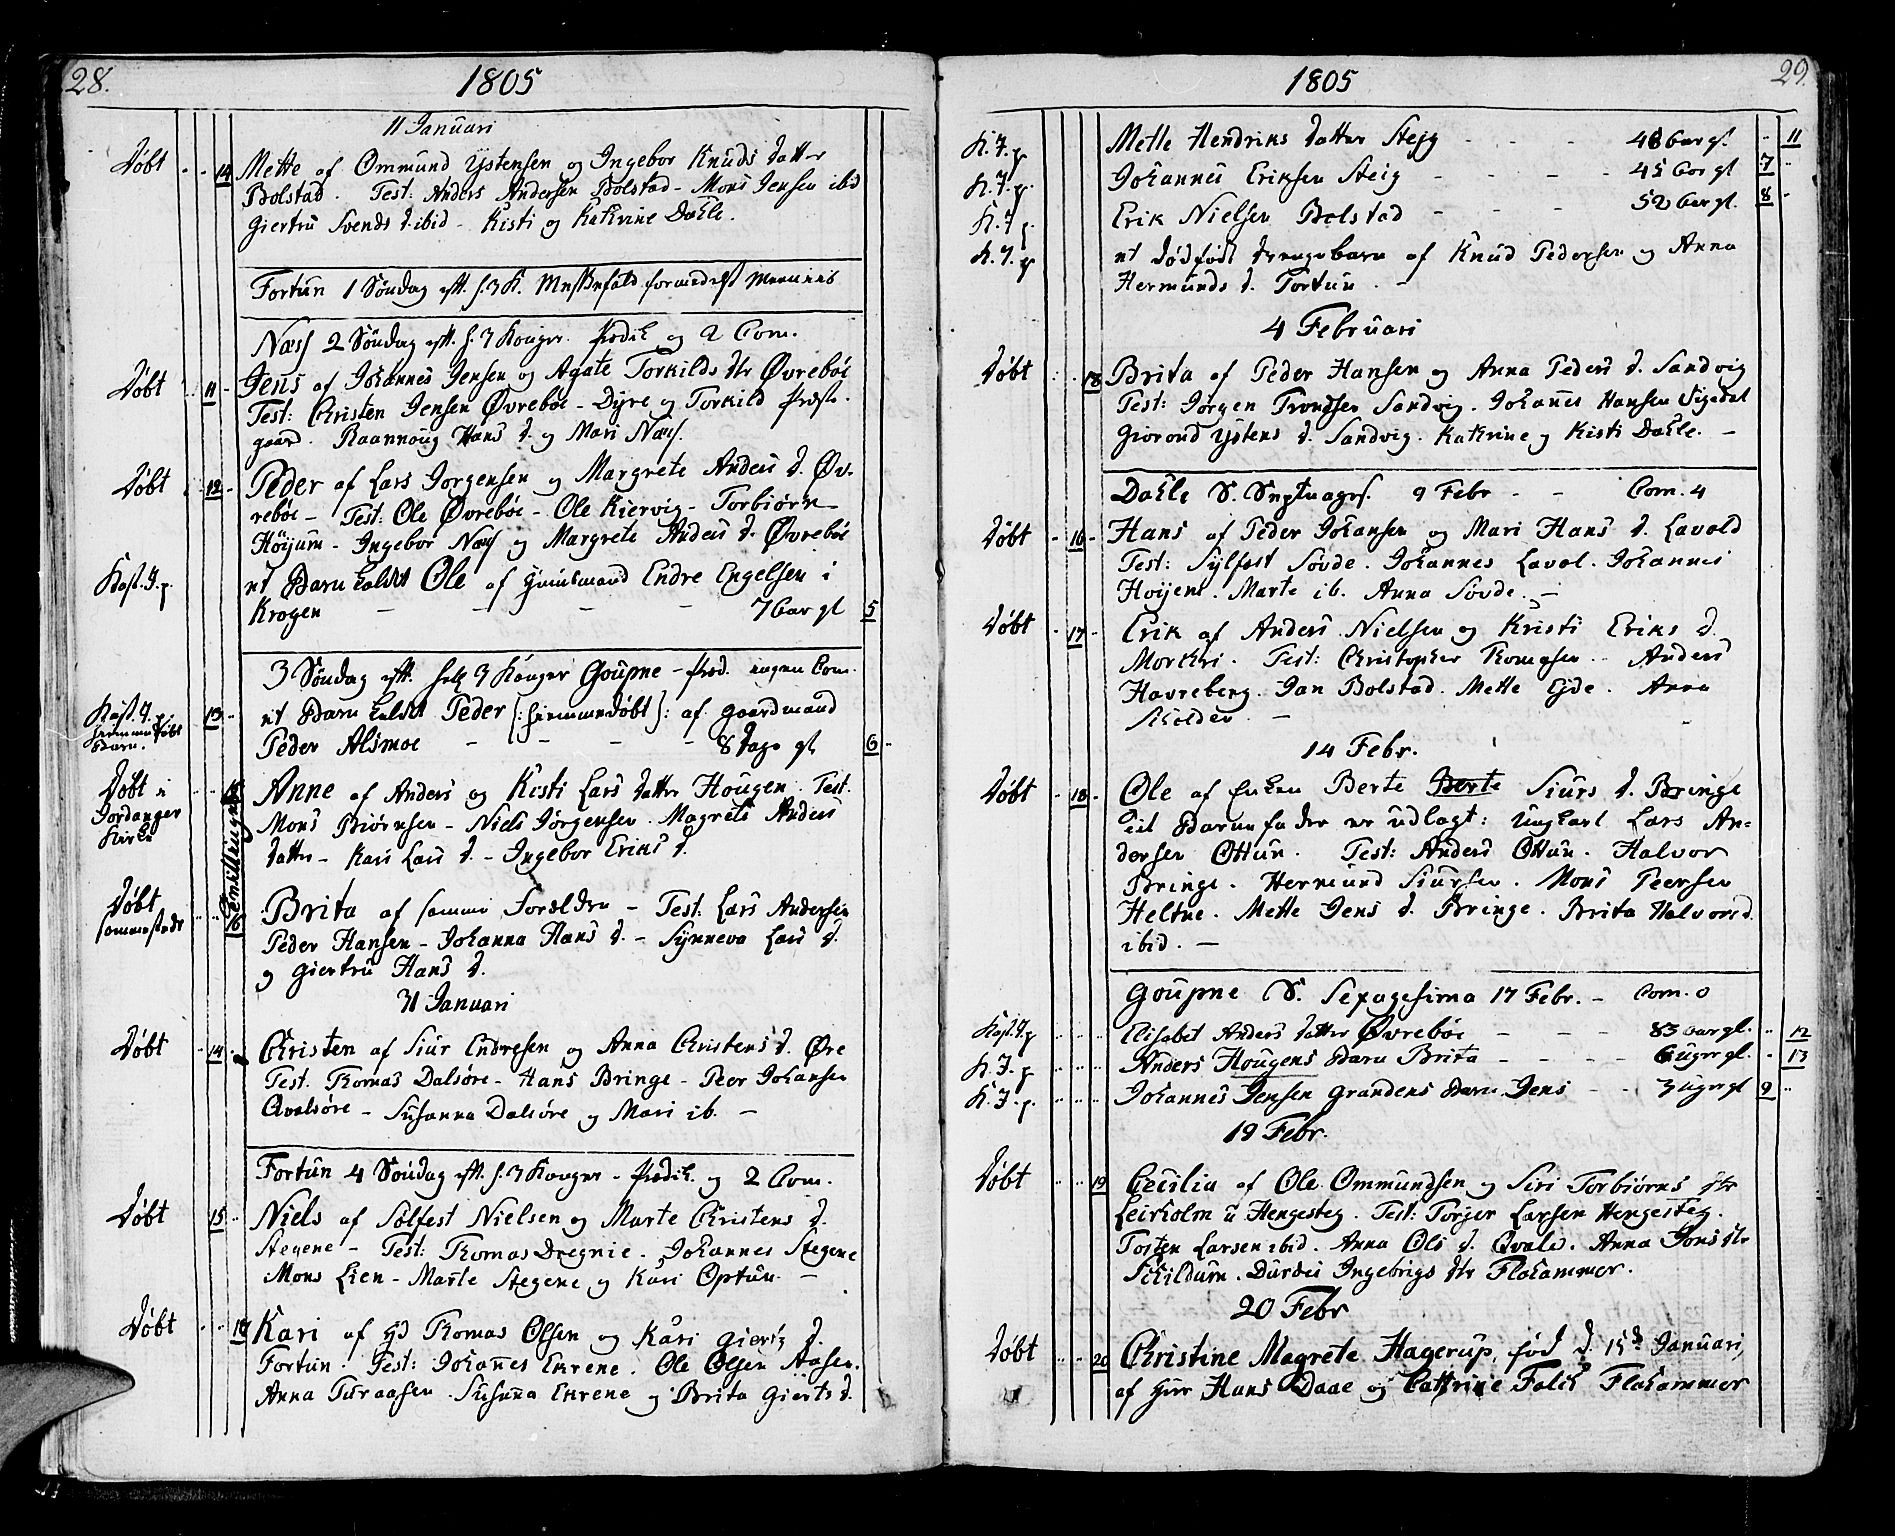 28.
1805
11 Januari
Døbt 14 Mette af Ommund Ystensen og Ingebor Knuds datter
Bolstad. Test: Anders Andersen Bolstad - Mons Jensen ibid
Giertru Svends d. ibid - Kisti og Katrine Dahle.
Fortun 1 Søndag eft. h. 3 K. Messefald formedelst
Næss 2 Søndag eft. h. 3 Konger. Prædik og 2 Com.
Døbt 11 Jens af Johannes Jensen og Agate Torkilds dtr Øvrebøe
Test: Christen Jensen Øvrebøe - Dyre og Torkild Præste-
gaard. Raannoug Hans d. og Mari Næss.
Døbt 12 Peder af Lars Jørgensen og Margrete Anders d. Øv-
rebøe - Test: Ole Øvrebøe - Ole Kiervig - Torbiørn
Høijum - Ingebor Næss og Margrete Anders d. Øvrebøe
Kast. J. p. et Barn kaldet Ole af Huusmand Endre Engelsen i
Krogen - - - - 7 Aar gl 5
3 Søndag eft. hel 3 Konger Goupne - Præd. ingen Com.
Kast. J. p. 13 et Barn kaldet Peder [: hiemmedøbt ]: af gaardmand
hiemmedøbt
Barn.
Peder Alsmoe - - - - 8 dage gl 6
Døbt i Anne af Anders og Kisti Lars datter Hougen. Test.
Jordanger
Kirke
Mons Biørnsen - Niels Jørgensen. Magrete Anders
datter - Kari Lars d. - Ingebor Eriks d.
Døbt Brita af samme Forældre - Test: Lars Andersen
sammestæds
Peder Hansen - Johanna Hans d. - Synneva Lars d.
og Giertru Hans d.
31 Januari
Døbt 14 Christen af Siur Endresen og Anna Christens d. Øre
Test. Thomas Dalsøre - Hans Bringe - Peer Johansen
Qvalsøre - Susanna Dalsøre og Mari ib. -
Fortun 4 Søndag eft. h. 3 Konger - Prædik. og 2 Com.
Døbt 15 Niels af Sølfest Nielsen og Marte Christens d.
Stegene - Test: Thomas Dregnie. Johannes Stegene
Mons Lien - Marte Stegene og Kari Optun. -
Døbt Kari af Thomas Olsen og Kari Giertz d.
Fortun. Test: Johannes Ekrene. Ole Olsen Aasen.
Anna Turaasen. Susanna Ekrene og Brita Gierts d.
29
1805
K. J. p. Mette Hendriks datter Steig - - - 48 Aar gl. 11
K. J. p. Johannes Eriksen Steig - - - 45 Aar gl 7
K. J. p. Erik Nielsen Bolstad - - - 52 Aar gl. 8
K. J. p. et dødfødt drengebarn af Knud Pedersen og Anna
Hermunds d. Fortun. -
4 Februari
Døbt Brita af Peder Hansen og Anna Peders d. Sandvig
Test: Jørgen Trondsen Sandvig. Johannes Hansen Sigedal
Giorond Ystens d. Sandvig. Katrine og Kisti Dahle. -
Dahle S. Septuages. 9 Febr - - Com. 4
Døbt 16 Hans af Peder Johansen og Mari Hans d. Lavold
Test: Sylfest Søvde. Johannes Lavol. Johannes
Høijem. Marte ib. Anna Søvde. -
Døbt 17 Erik af Anders Nielsen og Kristi Eriks d.
Morkri. Test: Christopher Thomasen. Anders
Havreberg. Jan Bolstad. Mette Eide. Anna
Skolden -
14 Febr.
Døbt 18 Ole af Enken Berte Berte Siurs d. Bringe
til Barnefader er udlagt: Ungkarl Lars An-
dersen Ottun. Test: Anders Ottun. Halvor
Bringe. Hermund Siursen. Mons Peersen
Heltne. Mette Jens d. Bringe. Brita Halvors d.
ibid. -
Goupne S. Sexagesima 17 Febr. - Com. 0
Kast. J. p Elisabet Anders datter Øvrebøe - - - 83 Aar gl. 12
K. J. p Anders Hougens Barn Brita - - - - 6 uger gl. 13
K. J. p. Johannes Jensen Grandens Barn Jens - - 3 uger gl 9
19 Febr.
Døbt 19 Cecilia af Ole Ommundsen og Siri Torbiørns dtr
Leirholm u Hengesteg. Test: Torger Larsen Hengesteg.
Torsten Larsen ibid. Anna Ols d. Qvale. Anna Jons dtr
Skildum. Durdei Ingebrigs dtr Flohammer.
20 Febr
Døbt 20 Christine Magrete Hagerup, fød d. 15d Januari,
af Herr Hans Daae og Cathrine Falck Flohammer